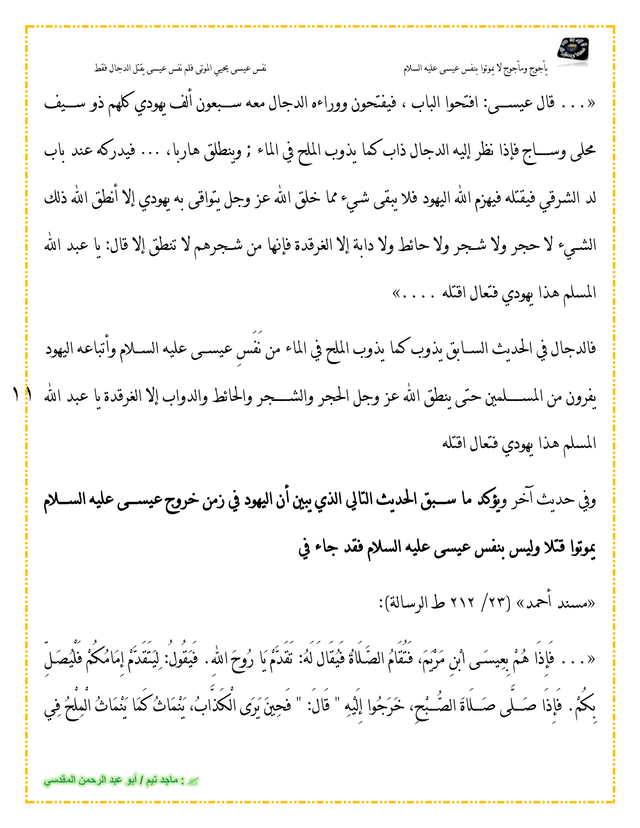 يأجوج ومأجوج لا يموتوا بنفس عيسى عليه السلام
نفس عيسى يحيي الموتى فلم نفس عيسى يقتل الدجال فقط
«... قال عيسى: افتحوا الباب ، فيفتحون ووراءه الدجال معه سبعون ألف يهودي كلهم ذو سيف
محلى وساج فإذا نظر إليه الدجال ذاب كما يذوب الملح في الماء ; وينطلق هاربا، ... فيدركه عند باب
لد الشرقي فيقتله فيهزم الله اليهود فلا يبقى شيء مما خلق الله عز وجل يتواقى به يهودي إلا أنطق الله ذلك
الشيء لا حجر ولا شجر ولا حائط ولا دابة إلا الغرقدة فإنها من شجرهم لا تنطق إلا قال: يا عبد الله
المسلم هذا يهودي فتعال اقتله ....»
فالدجال في الحديث السابق يذوب كما يذوب الملح في الماء من نَفَسِ عيسى عليه السلام وأتباعه اليهود
يفرون من المسلمين حتى ينطق الله عز وجل الحجر والشجر والحائط والدواب إلا الغرقدة يا عبد الله
١١
المسلم هذا يهودي فتعال اقتله
وفي حديث آخر ويؤكد ما سبق الحديث التالي الذي يبين أن اليهود في زمن خروج عيسى عليه السلام
يموتوا قتلا وليس بنفس عيسى عليه السلام فقد جاء في
«مسند أحمد» (٢٣/ ٢١٢ ط الرسالة):
«... فَإِذَا هُمْ بِعِيسَى ابْنِ مَرْيَمَ، فَتُقَامُ الصَّلَاةُ فَيُقَالُ لَهُ: تَقَدَّمْ يَا رُوحَ اللهِ. فَيَقُولُ: لِيَتَقَدَّمْ إِمَامُكُمْ فَلْيُصَلِّ
بِكُمْ. فَإِذَا صَلَّى صَلَاةَ الصُّبْحِ، خَرَجُوا إِلَيْهِ " قَالَ: " فَحِينَ يَرَى الْكَذَّابُ، يَنْمَاثُ كَمَا يَنْمَاثُ الْمِلْحُ فِي
: ماجد تيم / أبو عبد الرحمن المقدسي